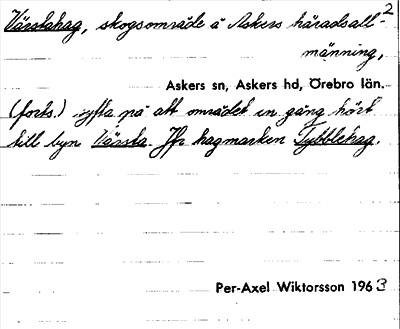 Värstahag, skogsområde å Askers häradsall- 2
männing,
Askers sn, Askers hd, Örebro län.
(forts.) syfta på att området en gång hört
till byn Värsta. Jfr hagmarken Tybblehag.
Per-Axel Wiktorsson 1963